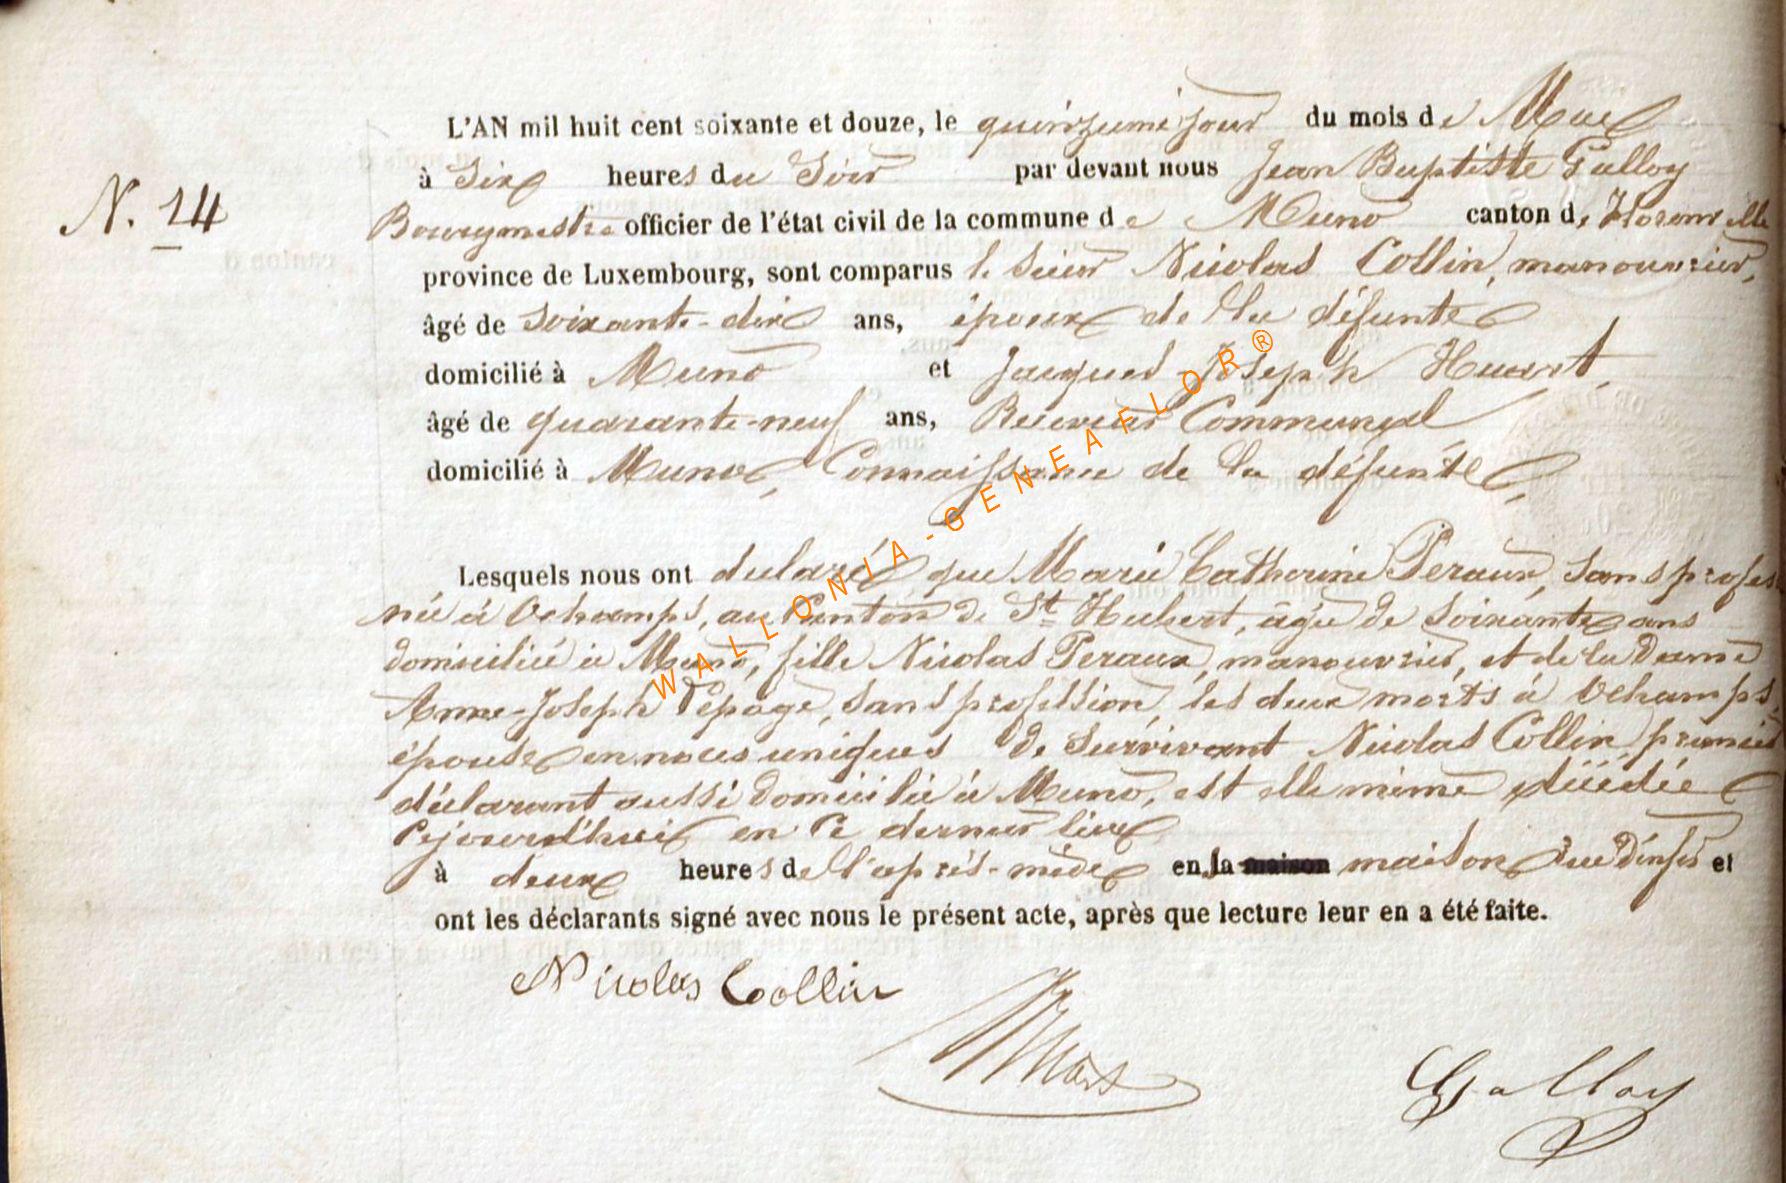 L'AN mil huit cent soixante et douze, le quinzième jour du mois de Mai
à Six heures du Soir par devant nous Jean Baptiste Galloy
N. 14
Bourgmestre officier de l'état civil de la commune de Muno canton de Florenville
province de Luxembourg, sont comparus le Sieur Nicolas Collin, manouvrier,
âgé de Soixante-dix ans, époux de la défunte
domicilié à Muno et Jacques-Joseph Huart,
âgé de quarante-neuf ans, Receveur Communal
domicilié à Muno, Connaissance de la défunte,
Lesquels nous ont déclaré que Marie Catherine Peraux, Sans profes
née à Ochamps, au Canton de St Hubert, âgée de Soixante ans
domiciliée à Muno, fille Nicolas Peraux, manouvrier, et de la Dame
Anne-Joseph Lepage, Sans profession, les deux morts à Ochamps,
épouse en noces uniques de Survivant Nicolas Collin, premier
déclarant aussi domicilié à Muno, est elle même décédée
Cejourd'hui en ce dernier lieu
à deux heures de l'après-midi en la maison maison rue et
ont les déclarants signé avec nous le présent acte, après que lecture leur en a été faite.
Nicolas Collin
Galloy
WALLONIA-GENEAFLOR®